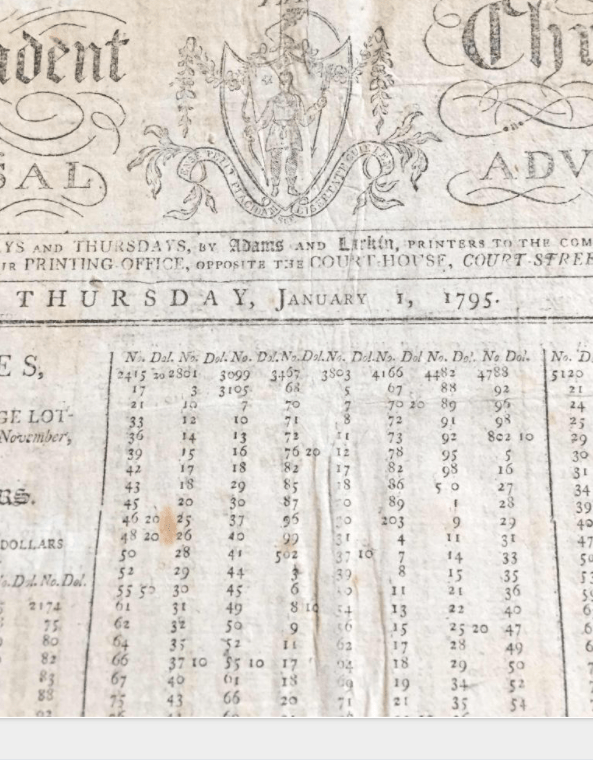 dent Ch
SAL ADV
YS AND THURSDAYS, BY Adams AND Larkin, PRINTERS TO THE COM
IR PRINTING-OFFICE, OPPOSITE THE COURT-HOUSE, COURT-STREE
THURSDAY, JANUARY 1, 1795.
ES,
GE LOT-
November,
RS.
DOLLARS
o. Dol. No. Dol.
2174
75
80
82
83
88
No. Dol. No. Dol. No. Dol. No. Dol. No. Dol. No. Dol No. Dol. No Dol. No. D
2415 20 2801 3099 3467 3803 4166 4482 4788 5120
17 3 3105 68 5 67 88 92 21
21 10 7 70 7 70 20 89 96 24
33 12 10 71 8 72 91 98 25
36 14 13 72 11 73 92 802 10 29
39 15 16 76 20 12 78 95 5 30
42 17 18 82 17 82 98 16 31
43 18 29 85 18 86 27 34
45 20 30 87 89 1 28 39
46 20 25 37 96 203 9 29 40
48 20 26 40 99 31 4 11 31 47
50 28 41 502 37 10 7 14 33
52 29 44 3 39 8 15 35
55 30 45 6 11 21 36
61 31 49 8 10 13 22 40
62 32 50 9 15 25 20 47
64 35 52 11 62 17 28 49
66 37 10 55 10 17 18 29 50
67 40 61 18 19 34 52
75 43 66 20 71 21 35 54